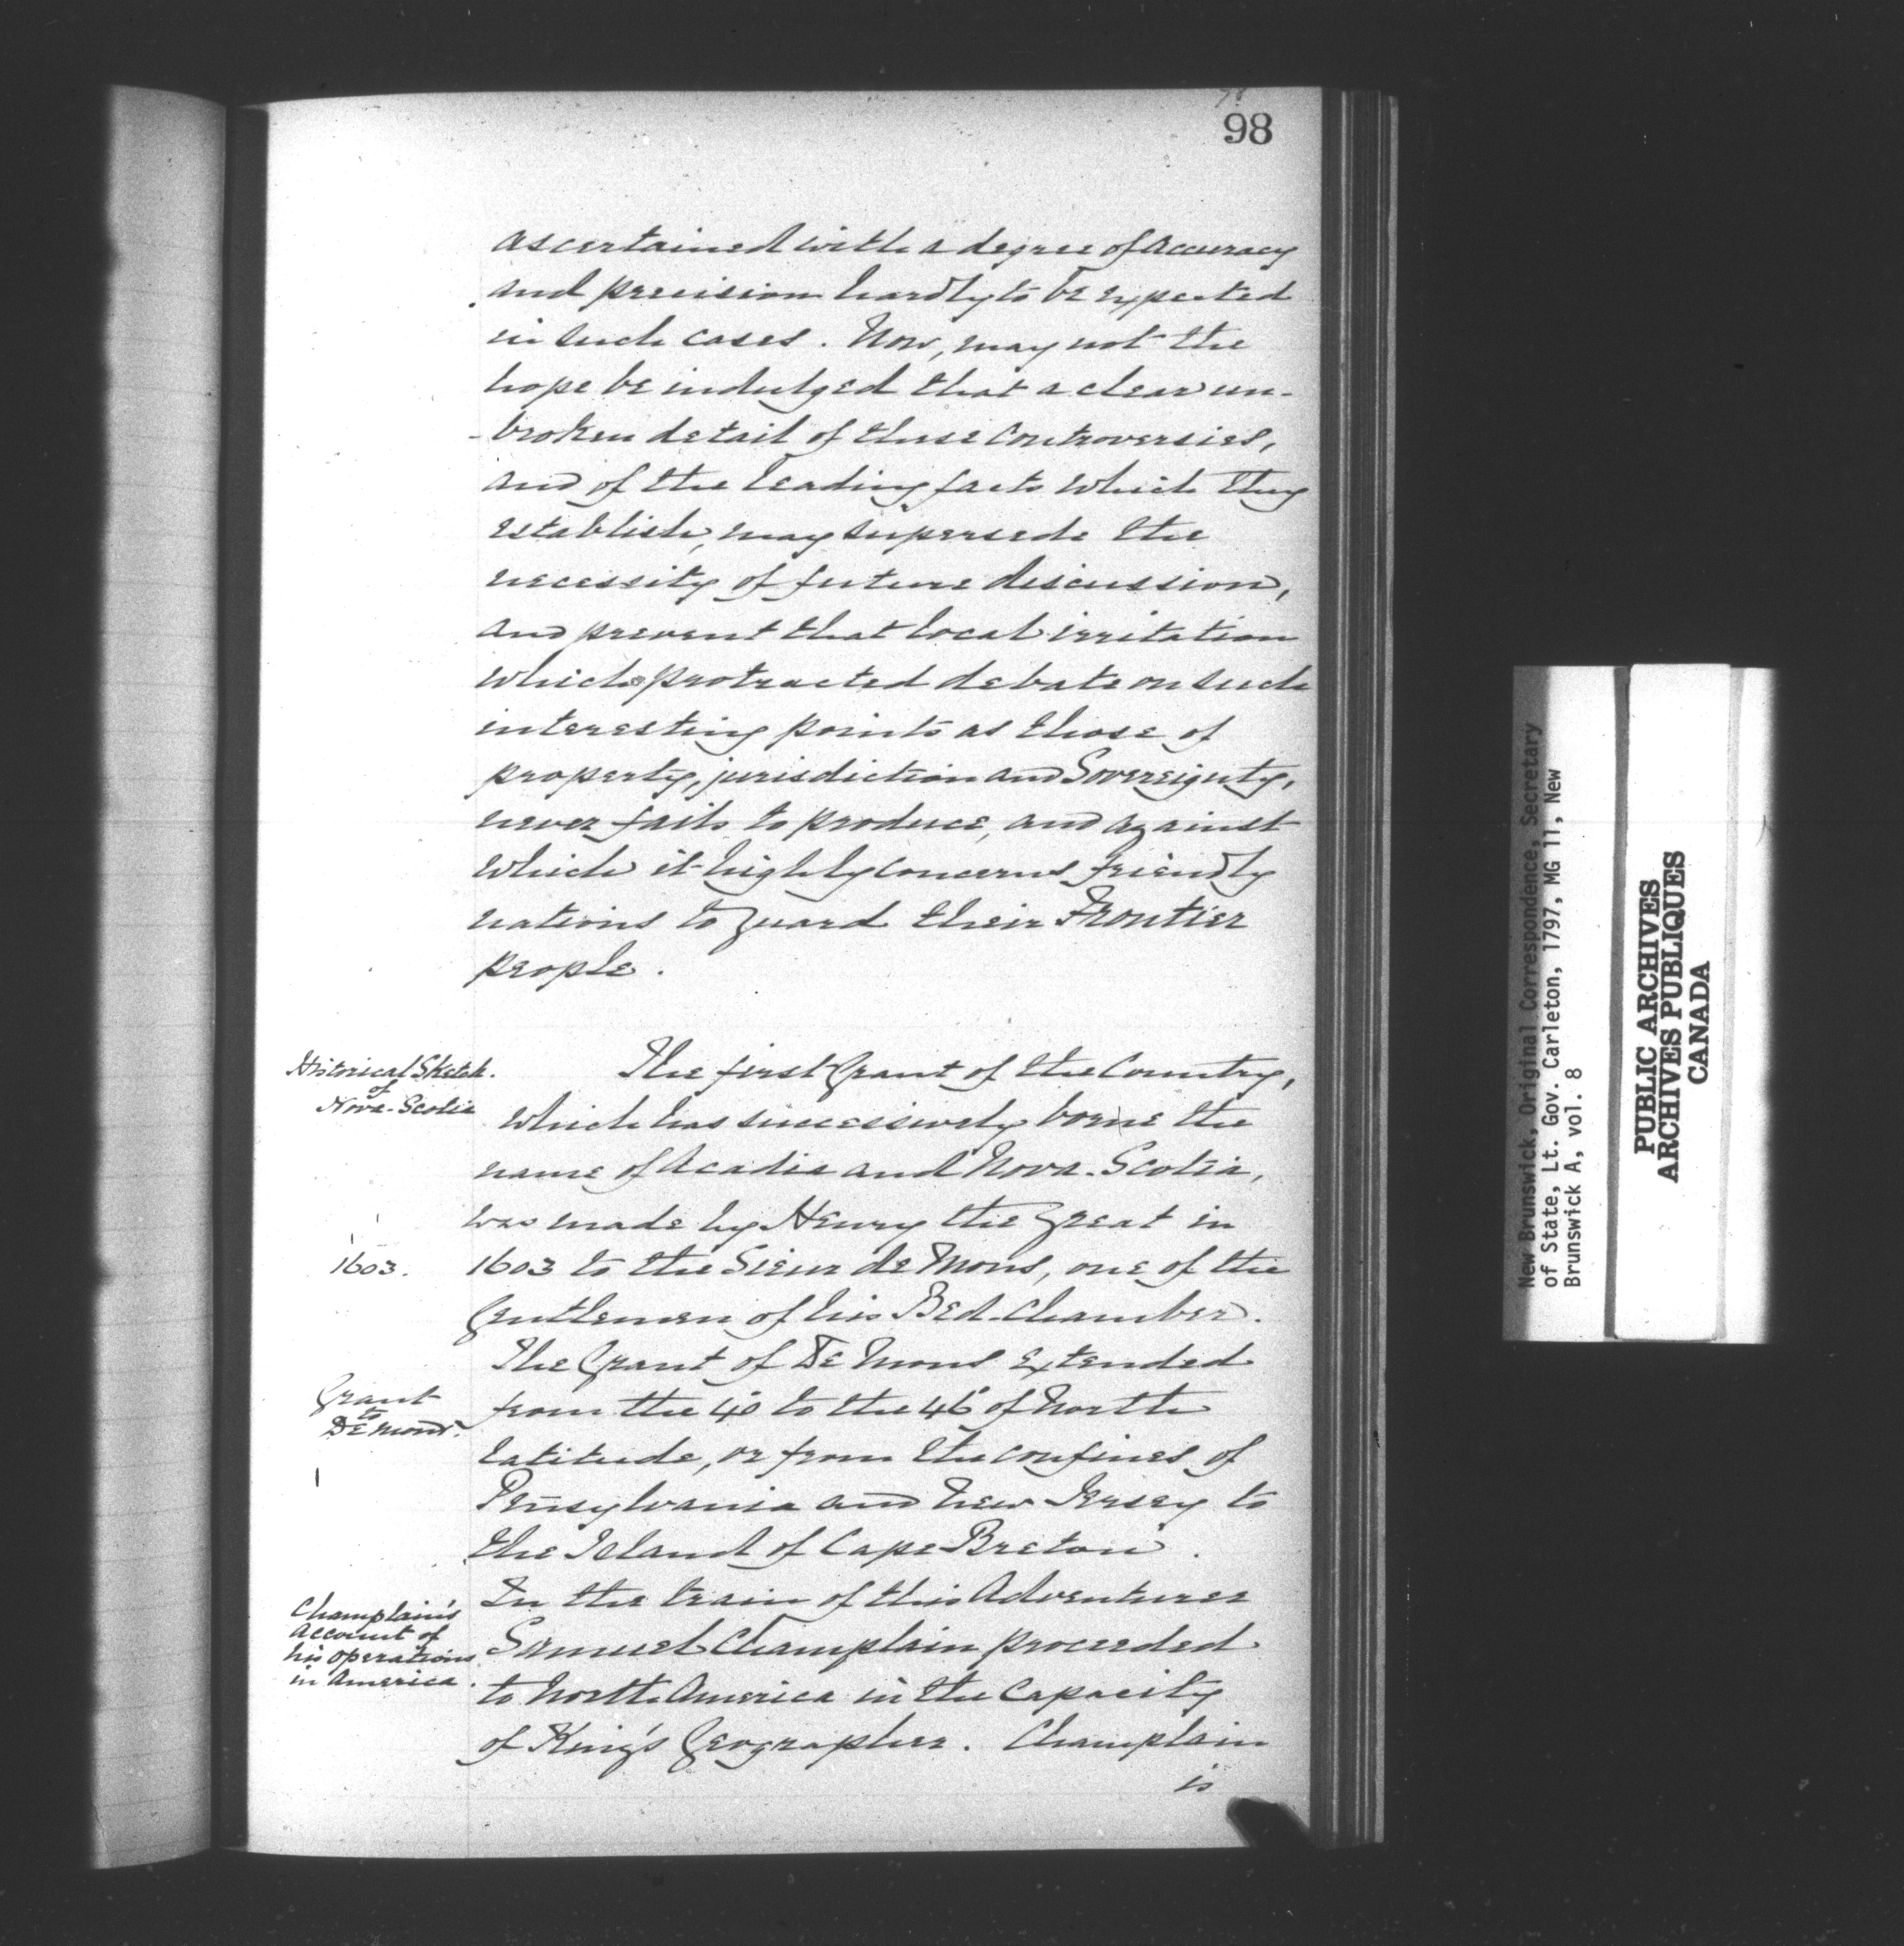 98
ascertained with a degree of accuracy
and precision hardly to be expected
in such cases. Now, may not the
hope be indulged that a clear un-
-broken detail of these controversies,
and of the leading facts which they
establish, may supersede the
necessity of future discussion,
and prevent that local irritation
which protracted debate on such
interesting points as those of
property, jurisdiction and Sovereignty,
never fails to produce, and against
which it highly concerns friendly
nations to guard their Frontier
people.
Historical Sketch
of
Nova-Scotia
The first Grant of the Country,
which has successively borne the
name of Acadia and Nova-Scotia,
was made by Henry the Great in
1603.
1603 to the Sieur de Mons, one of the
Gentlemen of his Bed-Chamber.
The Grant of De Mons extended
Grant
to
De Mons.
from the 40° to the 46° of North
latitude, or from the confines of
Pensylvania and New Jersey to
the Island of Cape Breton.
Champlain's
account of
his operations
in America.
In the train of this Adventurer
Samuel Champlain proceeded
to North America in the Capacity
of King's Geographer. Champlain
is
New Brunswick, Original Correspondence, Secretary
of State, Lt. Gov. Carleton, 1797, MG 11, New
Brunswick A, vol. 8
PUBLIC ARCHIVES
ARCHIVES PUBLIQUES
CANADA